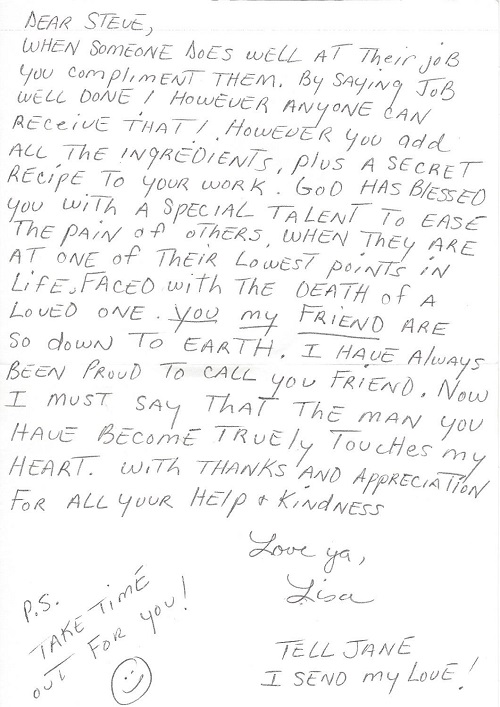 DEAR STEVE,
WHEN SOMEONE DOES WELL AT Their joB
you compliment THEM. By SAying JoB
WELL DONE! HOWEVER ANYONE CAN
RECEIVE THAT! HOWEVER you add
ALL THE INGREDIENTS, plus A SECRET
RECIPE TO YOUR WORK. GOD HAS BLESSED
you WITH A SPECIAL TALENT TO EASE
THE PAIN of OTHERS, WHEN THEY ARE
AT ONE OF THEIR LOWEST POINTS IN
LIFE, FACED WITH THE DEATH of A
LOVED ONE. you my FRIEND ARE
SO down TO EARTH. I HAVE Always
BEEN PROUD TO CALL you FRIEND. NOW
I MUST SAY THAT THE MAN you
HAVE BECOME TRUELY TOUCHES my
HEART. WITH THANKS AND APPRECIATION
FOR ALL YOUR HELP & KINDNESS
Love ya,
Lisa
P.S.
TAKE TIME
OUT FOR YOU!
TELL JANE
I SEND my LOVE!